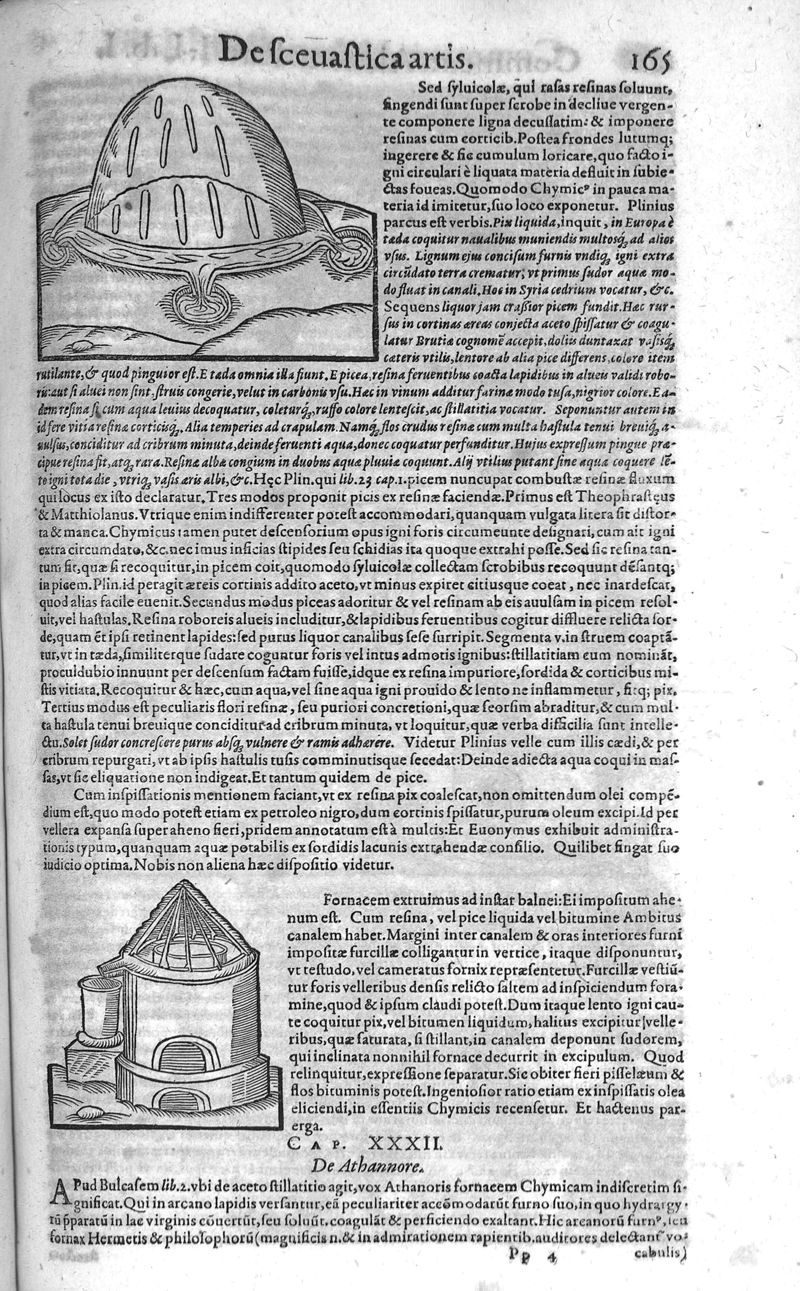 De sceuastica artis. 165
Sed syluicolæ, qui rasas resinas soluunt,
fingendi sunt super scrobe in decliue vergen-
te componere ligna decussatim: & imponere
resinas cum corticib. Postea frondes lutumq;
ingerere & sic cumulum loricare, quo facto i-
gni circulari è liquata materia defluit in subie-
ctas foueas. Quomodo Chymicꝰ in pauca ma-
teria id imitetur, suo loco exponetur. Plinius
parcus est verbis. Pix liquida, inquit, in Europa è
tæda coquitur naualibus muniendis multosq́; ad alios
vsus. Lignum ejus concisum furnis vndiq́; igni extra
circũdato terra crematur; vt primus sudor aquæ mo-
do fluat in canali. Hoc in Syria cedrium vocatur, &c.
Sequens liquor jam crassior picem fundit. Hæc rur-
sus in cortinas æreas conjecta aceto spissatur & coagu-
latur Brutia cognomẽ accepit, doliis duntaxat vasisq́;
cæteris vtilis, lentore ab alia pice differens, colore item
rutilante, & quod pinguior est. E tæda omnia illa fiunt. E picea, resina feruentibus coacta lapidibus in alueis validi robo-
ris: aut si aluei non sint, struis congerie, velut in carbonis vsu. Hæc in vinum additur farinæ modo tusa, nigrior colore. Ea-
dem resina si cum aqua leuius decoquatur, coleturq́;, ruffo colore lentescit, ac stillatitia vocatur. Seponuntur autem in
id fere vitia resinæ corticisq́;. Alia temperies ad crapulam. Namq́; flos crudus resinæ cum multa hastula tenui breuiq́; a-
uulsus, conciditur ad cribrum minuta, deinde feruenti aqua, donec coquatur perfunditur. Hujus expressum pingue præ-
cipue resina fit, atq́; rara. Resinæ albæ congium in duobus aquæ pluuiæ coquunt. Alij vtilius putant sine aqua coquere lẽ-
to igni tota die, vtriq́; vasis æris albi, &c. Hęc Plin. qui lib. 23 cap. 1. picem nuncupat combustæ resinæ fluxum
qui locus ex isto declaratur. Tres modos proponit picis ex resinæ faciendæ. Primus est Theophrastęus
& Matthiolanus. Vtrique enim indifferenter potest accommodari, quanquam vulgata litera sit distor-
ta & manca. Chymicus tamen putet descensorium opus igni foris circumeunte designari, cum ait igni
extra circumdato, &c. nec imus inficias stipides seu schidias ita quoque extrahi posse. Sed sic resina tan-
tum fit, quæ si recoquitur, in picem coit, quomodo syluicolæ collectam scrobibus recoquunt dẽsantq;
in picem. Plin. id peragit æreis cortinis addito aceto, vt minus expiret citiusque coeat, nec inardescat,
quod alias facile euenit. Secundus modus piceas adoritur & vel resinam ab eis auulsam in picem resol-
uit, vel hastulas. Resina roboreis alueis includitur, & lapidibus feruentibus cogitur diffluere relicta sor-
de, quam ẽt ipsi retinent lapides: sed purus liquor canalibus sese surripit. Segmenta v. in struem coaptã-
tur, vt in tæda, similiterque sudare coguntur foris vel intus admotis ignibus: stillatitiam eum nominãt,
proculdubio innuunt per descensum factam fuisse, idque ex resina impuriore, sordida & corticibus mi-
stis vitiata. Recoquitur & hæc, cum aqua, vel sine aqua igni prouido & lento ne inflammetur, fitq; pix.
Tertius modus est peculiaris flori resinæ, seu puriori concretioni, quæ seorsim abraditur, & cum mul-
ta hastula tenui breuique conciditur ad cribrum minuta, vt loquitur, quæ verba difficilia sunt intelle-
ctu. Solet sudor concrescere purus absq́; vulnere & ramis adhærere. Videtur Plinius velle cum illis cædi, & per
cribrum repurgari, vt ab ipsis hastulis tusis comminutisque secedat: Deinde adiecta aqua coqui in mas-
sas, vt sic eliquatione non indigeat. Et tantum quidem de pice.
Cum inspissationis mentionem faciant, vt ex resina pix coalescat, non omittendum olei compẽ-
dium est, quo modo potest etiam ex petroleo nigro, dum cortinis spissatur, purum oleum excipi. Id per
vellera expansa super aheno fieri, pridem annotatum est à multis: Et Euonymus exhibuit administra-
tionis typum, quanquam aquæ potabilis ex sordidis lacunis extrahendæ consilio. Quilibet fingat suo
iudicio optima. Nobis non aliena hæc dispositio videtur.
Fornacem extruimus ad instar balnei: Ei impositum ahe-
num est. Cum resina, vel pice liquida vel bitumine Ambitus
canalem habet. Margini inter canalem & oras interiores furni
impositæ furcillæ colliganturin vertice, itaque disponuntur,
vt testudo, vel cameratus fornix repræsentetur. Furcillæ vestiũ-
tur foris velleribus densis relicto saltem ad inspiciendum fora-
mine, quod & ipsum claudi potest. Dum itaque lento igni cau-
te coquitur pix, vel bitumen liquidum, halitus excipitur velle-
ribus, quæ saturata, si stillant, in canalem deponunt sudorem,
qui inclinata nonnihil fornace decurrit in excipulum. Quod
relinquitur, expressione separatur. Sic obiter fieri pisselæum &
flos bituminis potest. Ingeniosior ratio etiam ex inspissatis olea
eliciendi, in essentiis Chymicis recensetur. Et hactenus par-
erga.
CAP. XXXII.
De Athannore.
APud Bulcasem lib. 2. vbi de aceto stillatitio agit, vox Athanoris fornacem Chymicam indiscretim si-
gnificat. Qui in arcano lapidis versantur, eã peculiariter accõmodarũt furno suo, in quo hydrargy-
rũ p̃paratũ in lac virginis cõuertũt, seu soluũt. coagulãt & perficiendo exaltant. Hic arcanorũ furnꝰ, seu
fornax Hermetis & philosophorũ (magnificis n. & in admirationem rapientib. auditores delectantᷣ vo-
Pp 4 cabulis)